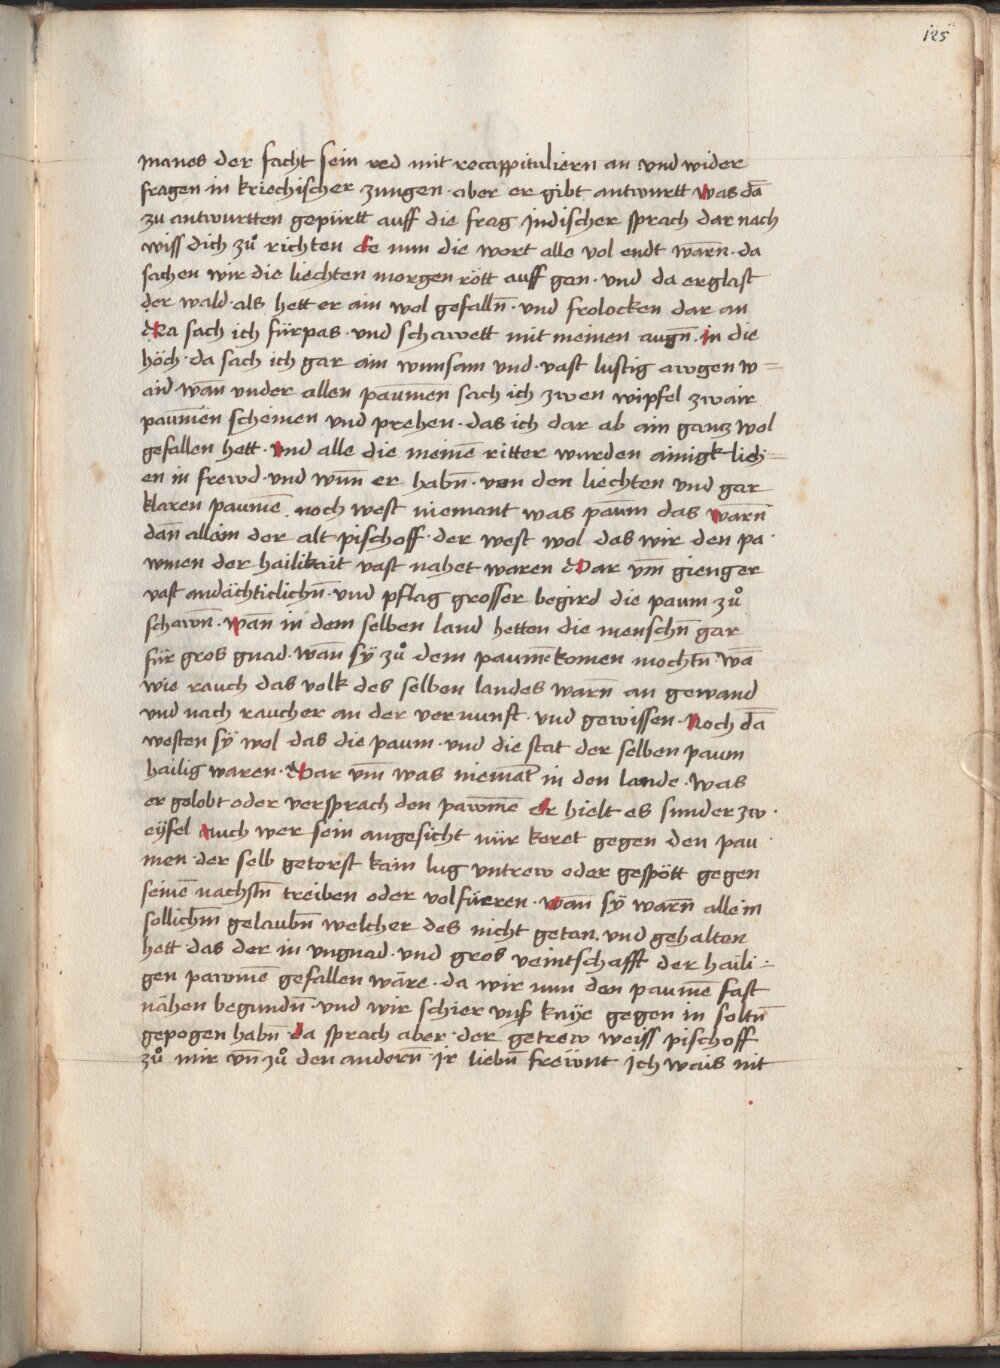 125
manes der facht sein red mit recappituliern an vnd wider
fragen in kriechischer zungen · aber er gibt antwurtt was dā
zu antwurtten gepürtt auff die frag Jndischer sprach dar nach
wiss dich zů richten do nun die wort alle vol endt warn̄ · da
sachen wir die liechten morgen rött auff gan · vnd da erglast
der wald · als hett er ain wol gefalln̄ · vnd frolocken dar an
Da sach ich fürpas · vnd schawett mit meinen augn̄ · in die
höch · da sach ich gar ain wunsam vnd · vast lustig awgen w=
aid wan̄ vnder allen paum̄en sach ich zwen wipfel zwair
paum̄en scheinen vnd prehen · das ich dar ab ain ganz wol
gefallen hett · vnd alle die meinē ritter wurden ainigk lich=
en in frewd · vnd wun̄ er habn̄ · von den liechten vnd gar
klaren paumē · noch west niemant was paum̄ das warn̄
dan̄ allain der alt pischoff · der west wol das wir den pa·
wmen der hailikait vast nahet waren Dar vm̄ gienger
vast andächticlichn̄ · vnd pflag grosser begird die paum zů
schawn̄ · wan̄ in dem selben land hetten die menschn̄ gar
für gros gnad · wan̄ sÿ zů dem paumē komen mochtn̄ · wā
wie rauch das volk des selben landes warn̄ an gewand
vnd nach raucher an der vernunft · vnd gewissen · Noch dā
westen sÿ wol das die paum · vnd die stat der selben paum
hailig waren · Dar vm̄ was niemāt in den lande · was
er gelobt oder versprach den pawmē er hielt es sunder zw·
eÿfel Auch wer sein angesicht nür keret gegen den pau·
men · der selb getorst kain lug vntrew oder gespött gegen
seinē nachstn̄ treiben oder volfüeren · wan̄ sÿ warn̄ allein
sollichm̄ gelaubn̄ welcher des nicht getan · vnd gehalten
hett · das der in vngnad · vnd gros veintschafft der haili·=
gen pawmē gefallen wäre · da wir nun den paumē fast
nähen begundn̄ · vnd wir schier vnß knÿe gegen in soltn̄
gepogen habn̄ da sprach aber · der getrew weiss pischoff
zů mir vn̄ zů den andern̄ · Jr liebn̄ frewnt Jch wais nit